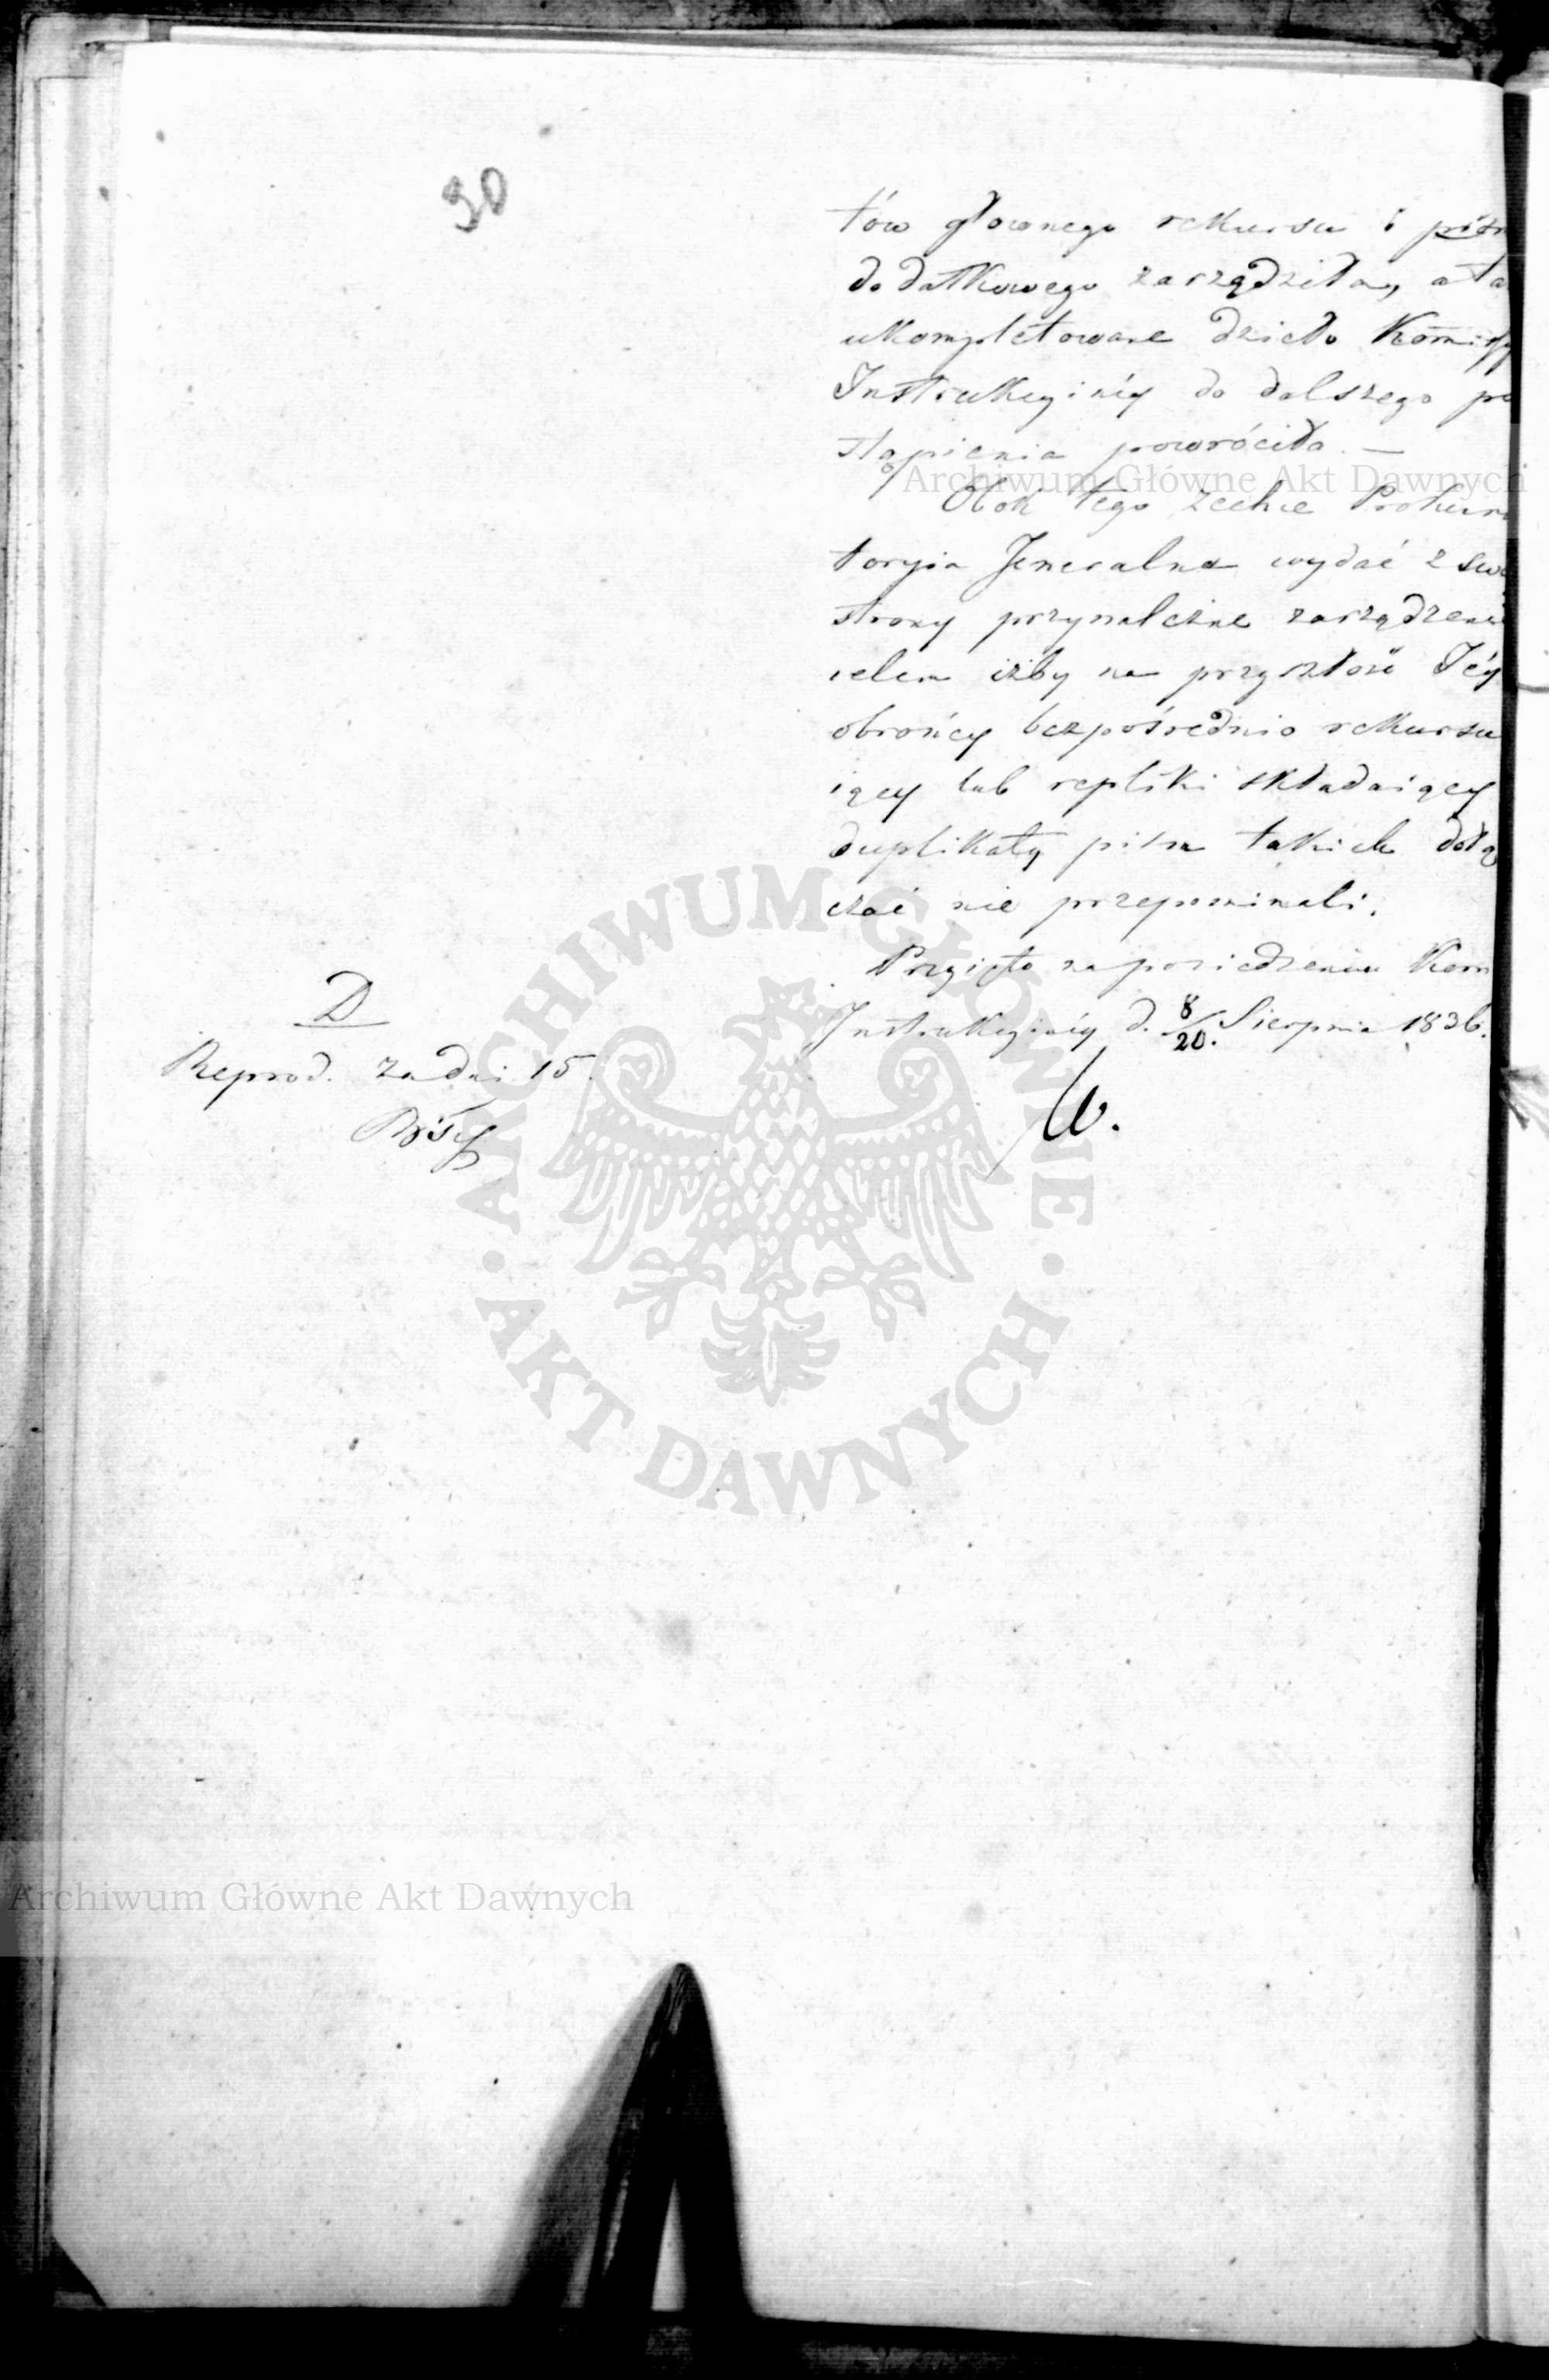 30
tów głownego rekursu i pism
dodatkowego zarządziła, a ta
ukompletowane dzieło Kommissy
Instrukcyinéy do dalszego po
stąpienia powróciła. —
Archiwum Główne Akt Dawnych
Obok tego zechce Prokura
torya Jeneralna wydać z swé
strony przynależne zarządzeni
celem iżby na przyszłość Téy
obrońcy bezpośrednio rekursu
iący lub repliki składaiący
duplikaty pism takich dołą
czać nie przepominali.
Przyięto na posiedzeniu Kom
Instrukcyinéy d. 8/20. Sierpnia 1836.
D
Reprod. za dni 15.
ARCHIWUM GŁÓWNE
AKT DAWNYCH
Archiwum Główne Akt Dawnych